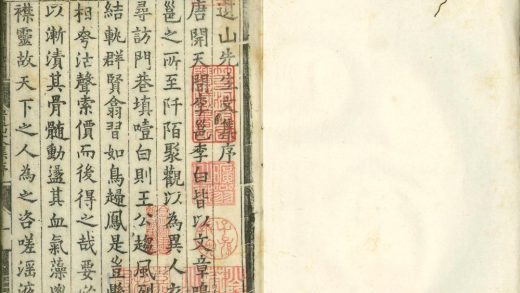 山先生文集序
唐開天間李邕李白皆以文章鳴
邕之所至阡陌聚觀以為異人衣
尋訪門巷填噎白則王公趨風列
結軌群賢翕習如鳥趨鳳是豈
相夸沽聲索價而後得之哉要必
以漸漬其骨髓動盪其血氣藻
襟靈故天下之人為之咨嗟滛液